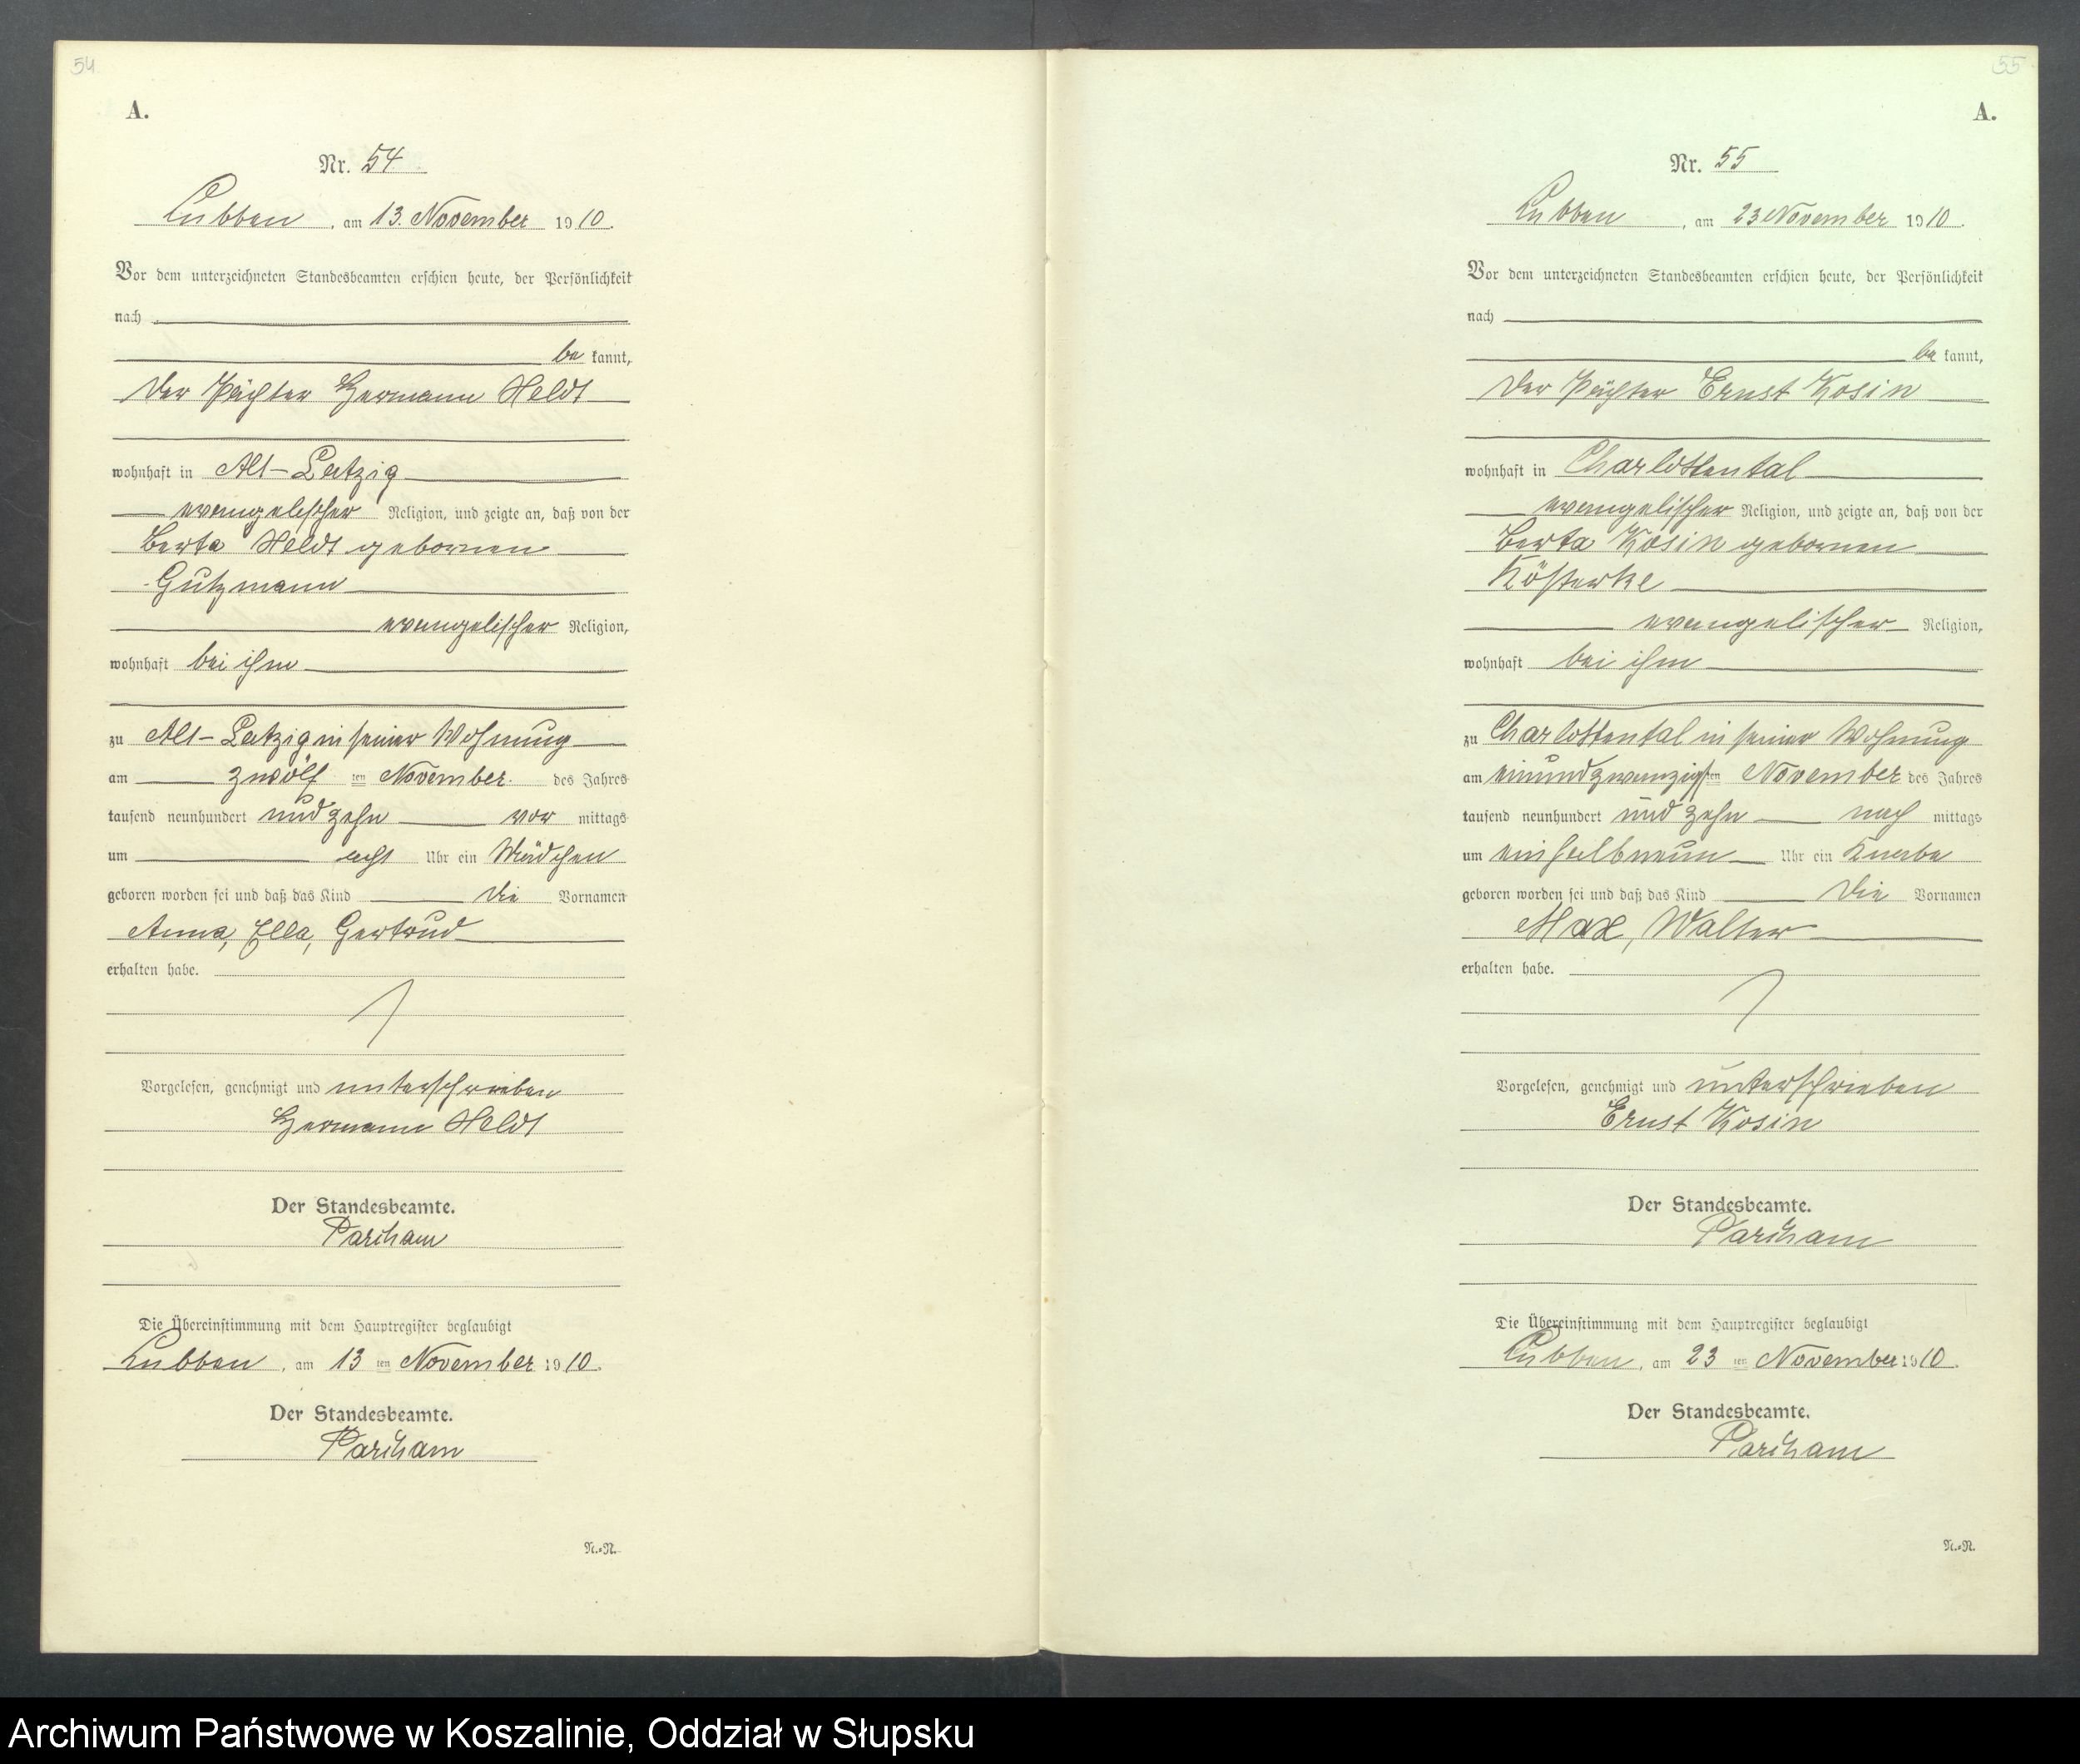 54
A.
Nr. 54
Lubben, am 13. November 1910.
Vor dem unterzeichneten Standesbeamten erschien heute, der Persönlichkeit
nach
be kannt,
der Pächter Hermann Heldt
wohnhaft in Alt-Latzig
evangelischer Religion, und zeigte an, daß von der
Berta Heldt gebornen
Gutzmann
evangelischer Religion,
wohnhaft bei ihm
zu Alt-Latzig in seiner Wohnung
am zwölf ten November des Jahres
tausend neunhundert und zehn vor mittags
um acht Uhr ein Mädchen
geboren worden sei und daß das Kind die Vornamen
Anna, Ella, Gertrud
erhalten habe.
Vorgelesen, genehmigt und unterschrieben
Hermann Heldt
Der Standesbeamte.
Die Übereinstimmung mit dem Hauptregister beglaubigt
Lubben, am 13 ten November 1910.
Der Standesbeamte.
N.=R.
55
A.
Nr. 55
Lubben, am 23 November 1910.
Vor dem unterzeichneten Standesbeamten erschien heute, der Persönlichkeit
nach
be kannt,
der Pächter Ernst Kosin
wohnhaft in Charlottental
evangelischer Religion, und zeigte an, daß von der
Berta Kosin gebornen
Kösterke
evangelischer Religion,
wohnhaft bei ihm
zu Charlottental in seiner Wohnung
am einundzwanzigsten November des Jahres
tausend neunhundert und zehn nach mittags
um einhalbneun Uhr ein Knabe
geboren worden sei und daß das Kind die Vornamen
Max, Walter
erhalten habe.
Vorgelesen, genehmigt und unterschrieben
Ernst Kosin
Der Standesbeamte.
Die Übereinstimmung mit dem Hauptregister beglaubigt
Lubben, am 23 ten November 1910.
Der Standesbeamte.
N.=R.
Archiwum Państwowe w Koszalinie, Oddział w Słupsku